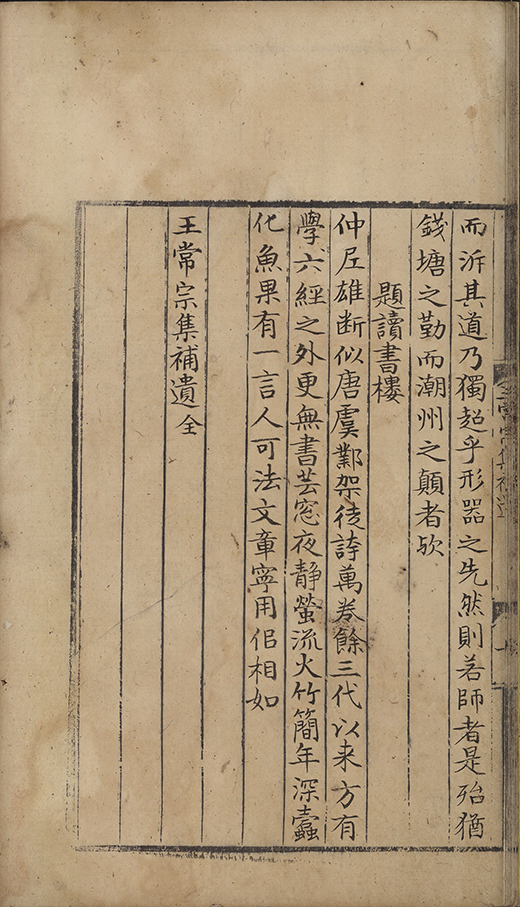 而泝其道乃獨超乎形器之先然則若師者是殆猶
錢塘之勤而潮州之顛者欤
題讀書樓
仲𡰱雄断似唐虞鄴架徒誇萬卷餘三代以来方有
學六經之外更無書芸窓夜静螢流火竹簡年深蠹
化魚果有一言人可法文章寧用佀相如
王常宗集補遺全